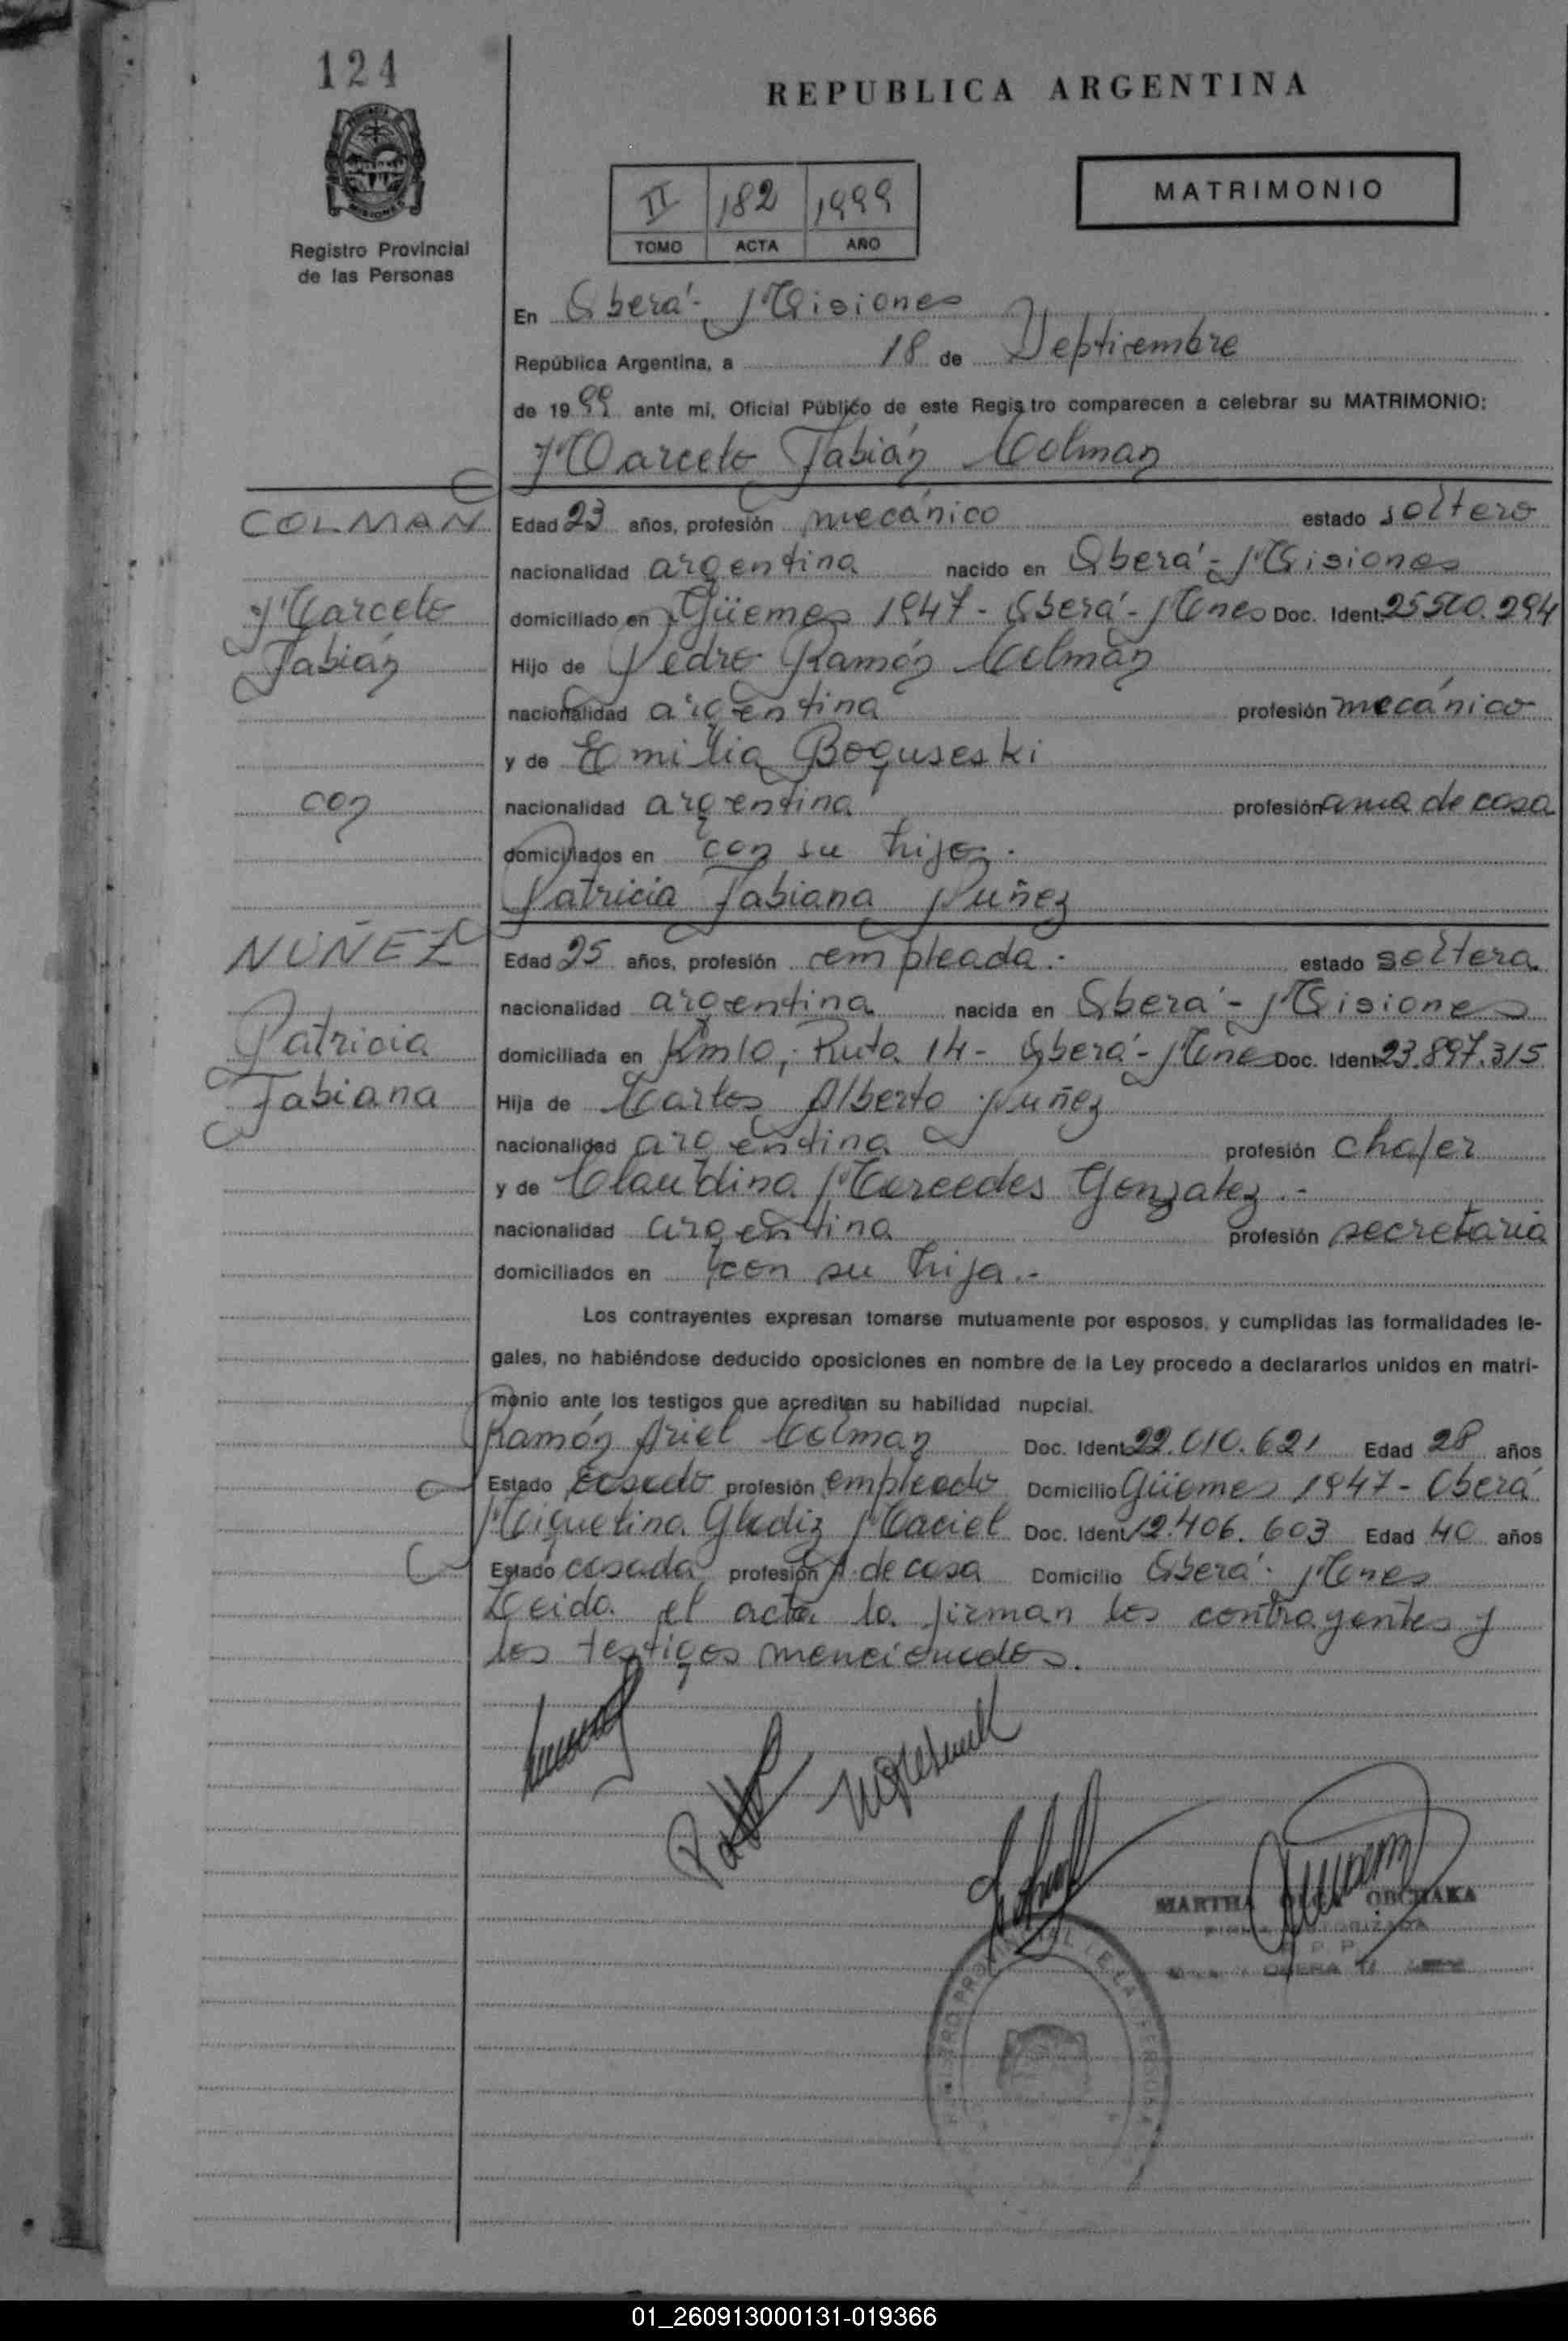 124
REPUBLICA ARGENTINA
MISIONES
Registro Provincial
de las Personas
II 182 1999
TOMO ACTA AÑO
MATRIMONIO
En Oberá - Misiones
República Argentina, a 18 de Septiembre
de 1999 ante mi, Oficial Público de este Registro comparecen a celebrar su MATRIMONIO:
Marcelo Fabián Colman
COLMAN
Edad 23 años, profesión mecánico estado soltero
nacionalidad argentina nacido en Oberá - Misiones
Marcelo
domiciliado en Güemes 1947 - Oberá - Mnes Doc. Ident. 25.500.294
Fabián
Hijo de Pedro Ramón Colman
nacionalidad argentina profesión mecánico
y de Emilia Boguseski
con
nacionalidad argentina profesión ama de casa
domiciliados en con su hijo.
Patricia Fabiana Nuñez
NUÑEZ
Edad 25 años, profesión empleada.- estado soltera
nacionalidad argentina nacida en Oberá - Misiones
Patricia
domiciliada en Km 10, Ruta 14 - Oberá - Mnes Doc. Ident. 23.897.315
Fabiana
Hija de Carlos Alberto Nuñez
nacionalidad argentina profesión chofer
y de Claudina Mercedes Gonzalez.-
nacionalidad argentina profesión secretaria
domiciliados en con su hija.-
Los contrayentes expresan tomarse mutuamente por esposos, y cumplidas las formalidades le-
gales, no habiéndose deducido oposiciones en nombre de la Ley procedo a declararlos unidos en matri-
monio ante los testigos que acreditan su habilidad nupcial.
Ramón Ariel Colman Doc. Ident. 22.010.621 Edad 28 años
Estado casado profesión empleado Domicilio Güemes 1947 - Oberá
Miguelina Gladiz Maciel Doc. Ident. 12.406.603 Edad 40 años
Estado casada profesión A. de casa Domicilio Oberá - Mnes
Leida el acta la firman los contrayentes y
los testigos mencionados.
MARTHA OLGA OBCHAKA
FIRMA AUTORIZADA
01_260913000131-019366